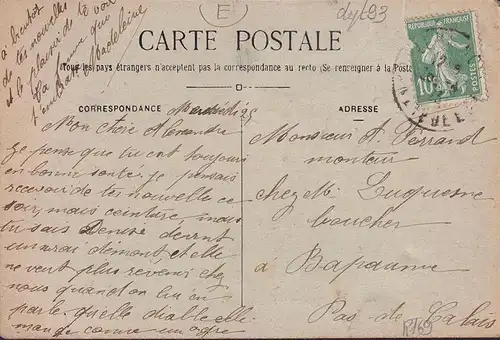 à bientôt
de tes nouvelles
et le plaisir de te voir
que
t'embrasse Madeleine
E
dept 93
CARTE POSTALE
Tous les pays étrangers n'acceptent pas la correspondance au recto (Se renseigner à la Poste
RÉPUBLIQUE FRANÇAISE
10
CORRESPONDANCE
ADRESSE
Mercredi 25
Mon chère Alexandre
Je pense que tu est toujours
en bonne santé. je pensais
recevoir de tes nouvelles ce
soir, mais ceinture, mais
tu sais Denise devient
un vrai démont, et elle
ne veut plus revenir chez
nous quand on lui en
parle. quelle diable elle
mange comme un ogre
Monsieur A. Ferrand
monteur
chez M. Luquesne
boucher
à Bapaume
Pas-de-Calais